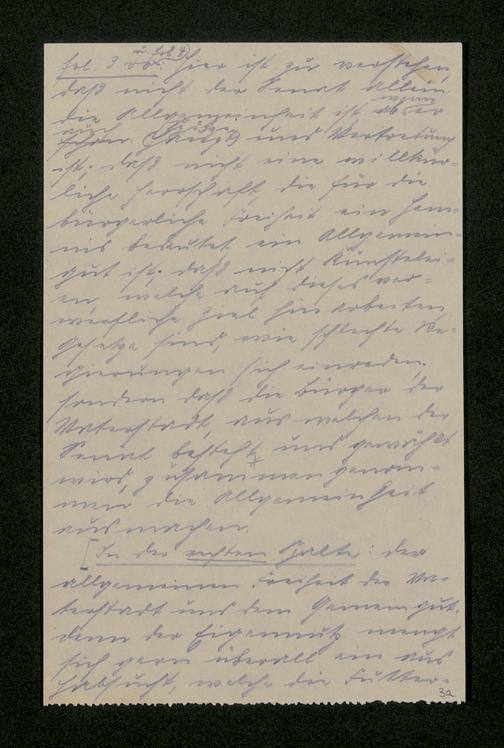 u. fol. 4)
fol. 3 vo: Hier ist zu verstehen,
daß nicht der Senat allein
die Allgemeinheit ist wenn er
auch und Vertretung
ist; daß nicht eine willkür-
liche Herrschaft, die für die
bürgerliche Freiheit ein Hem-
nis bedeutet ein Allgemein-
gut ist; daß nicht Künstelei-
en, welche auf dieses ver-
werfliche Ziel hinarbeiten,
Gesetze sind, wie schlechte Re-
gierungen sich einreden.
sondern daß die Bürger der
Vaterstadt, aus welchen der
Senat besteht und gewählt
wird, zusammen genom-
men die Allgemeinheit
ausmachen.
[In der rechten Spalte: der
allgemeinen Freiheit der Va-
terstadt und dem Gemeingut.
denn der Eigennutz mengt
sich gern überall ein aus
Habsucht, welche die Futter-
3a